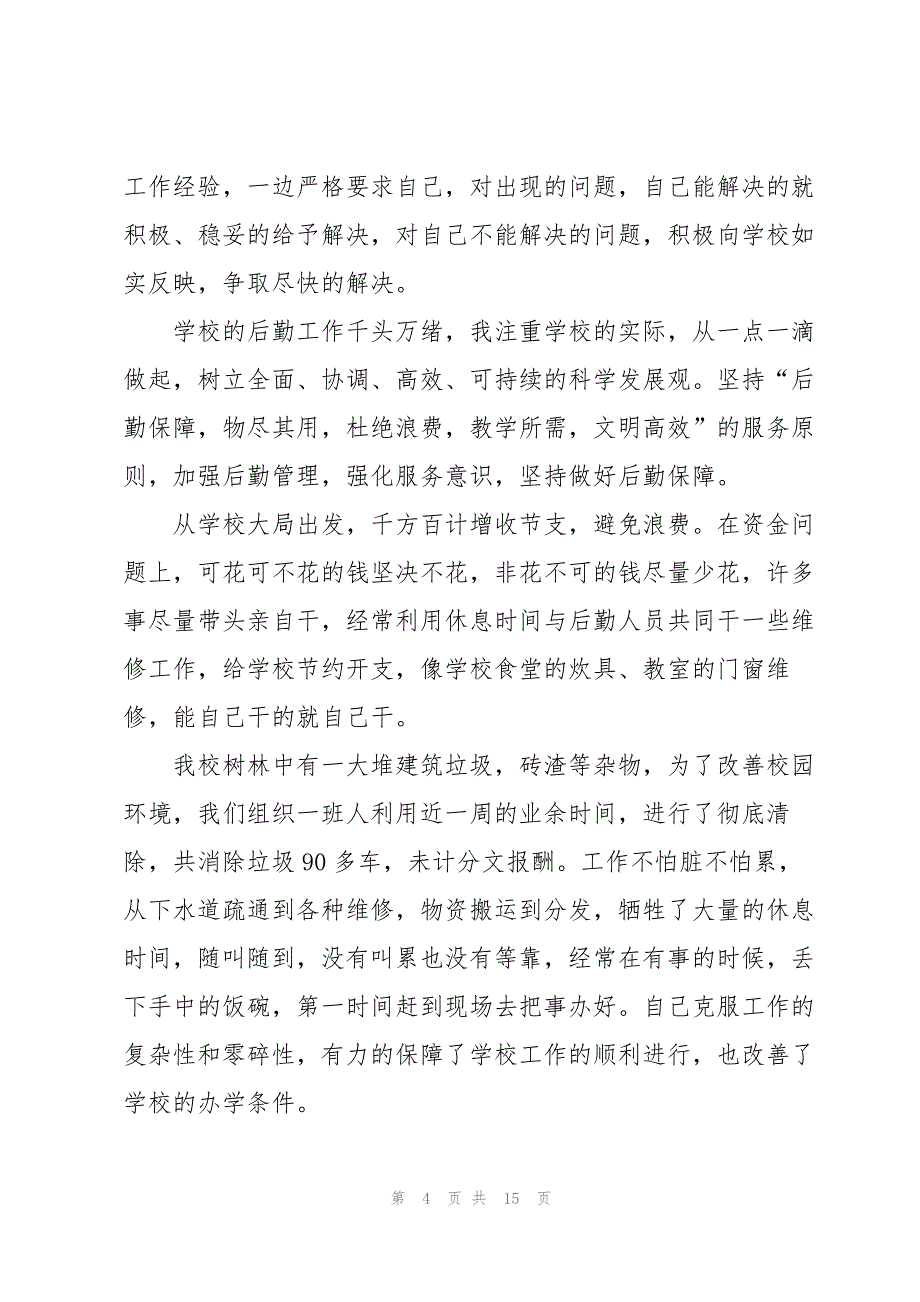 工作经验，一边严格要求自己，对出现的问题，自己能解决的就
积极、稳妥的给予解决，对自己不能解决的问题，积极向学校如
实反映，争取尽快的解决。
学校的后勤工作千头万绪，我注重学校的实际，从一点一滴
做起，树立全面、协调、高效、可持续的科学发展观。坚持“后
勤保障，物尽其用，杜绝浪费，教学所需，文明高效”的服务原
则，加强后勤管理，强化服务意识，坚持做好后勤保障。
从学校大局出发，千方百计增收节支，避免浪费。在资金问
题上，可花可不花的钱坚决不花，非花不可的钱尽量少花，许多
事尽量带头亲自干，经常利用休息时间与后勤人员共同干一些维
修工作，给学校节约开支，像学校食堂的炊具、教室的门窗维
修，能自己干的就自己干。
我校树林中有一大堆建筑垃圾，砖渣等杂物，为了改善校园
环境，我们组织一班人利用近一周的业余时间，进行了彻底清
除，共消除垃圾 90 多车，未计分文报酬。工作不怕脏不怕累，
从下水道疏通到各种维修，物资搬运到分发，牺牲了大量的休息
时间，随叫随到，没有叫累也没有等靠，经常在有事的时候，丢
下手中的饭碗，第一时间赶到现场去把事办好。自己克服工作的
复杂性和零碎性，有力的保障了学校工作的顺利进行，也改善了
学校的办学条件。
第 4 页 共 15 页